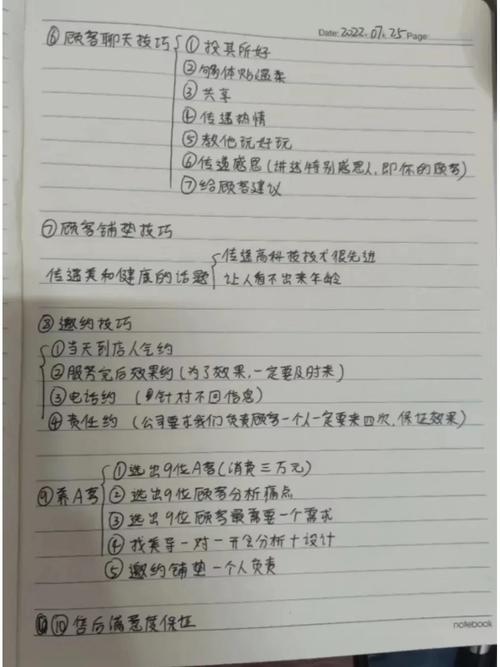 Date: 2022.07.25 Page:
⑥ 顾客聊天技巧
① 投其所好
② 够体贴温柔
③ 共享
④ 传递热情
⑤ 教他玩好玩
⑥ 传递感恩(讲述特别感恩人,即你的顾客)
⑦ 给顾客建议
⑦ 顾客铺垫技巧
传递高科技技术很先进
传递美和健康的话题
让人看不出来年龄
⑧ 邀约技巧
① 当天到店人气约
② 服务完后效果约(为了效果,一定要及时来)
③ 电话约 (针对不回信息)
④ 责任约 (公司要求我们负责顾客一个人一定要来四次,保证效果)
① 选出9位A客(消费三万元)
⑨ 养A客
② 选出9位顾客分析痛点
③ 选出9位顾客最需要一个需求
④ 找美导一对一开会分析+设计
⑤ 邀约铺垫一个人负责
⑩ 售后满意度保证
notebook